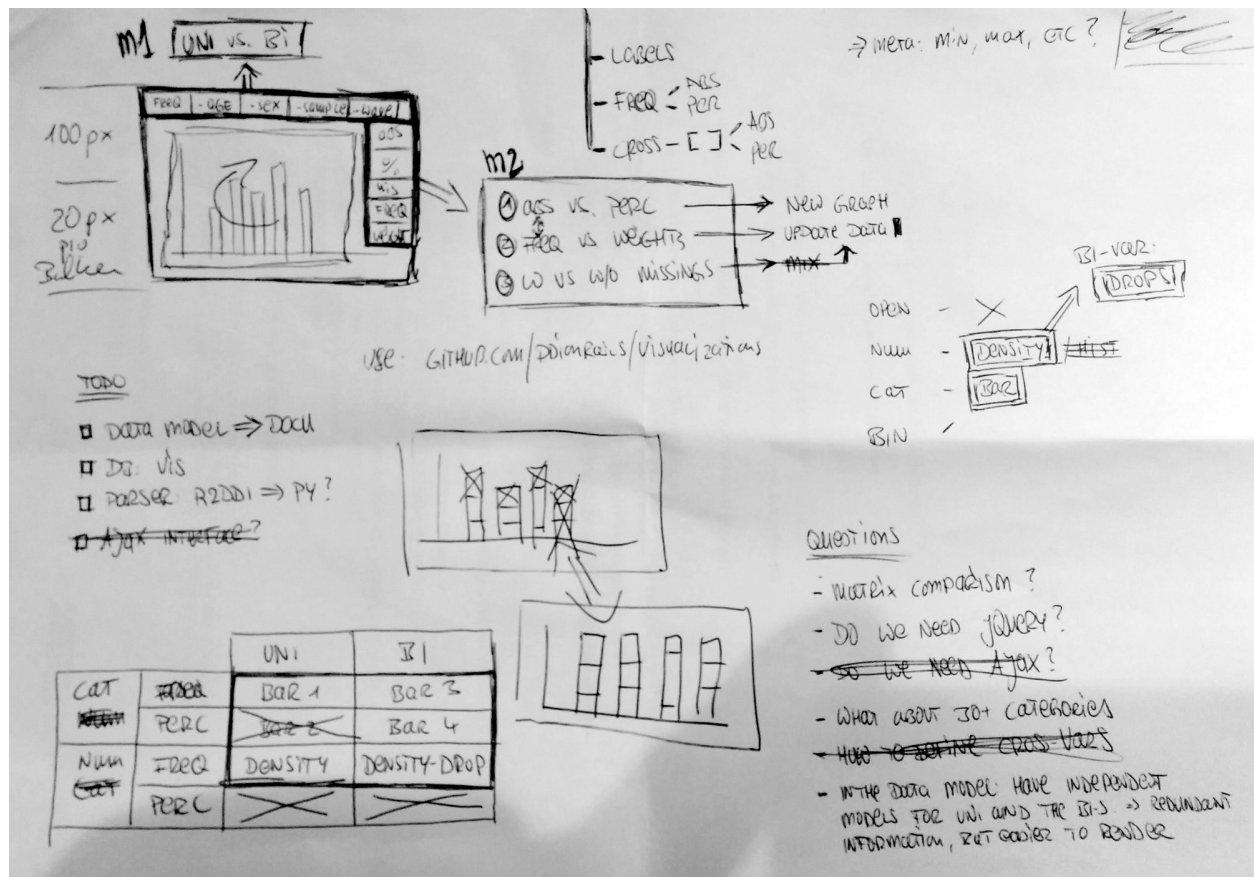 m1 UNI vs. Bi
FREQ -age -sex -sample -wave
abs
%
mis
FREQ
weight
100 px
20 px
pro
Balken
- LABELS
- FREQ < ABS
PER
- CROSS - [ ] < ABS
PER
⇒ meta: min, max, etc?
m2
① abs vs. Perc → New Graph
② Freq vs weights → update data
③ w vs w/o missings → mix
use: GITHUB.com/DDIonRails/visualizations
Bi-var:
DROPS
OPEN - X
Num - DENSITY / HIST
Cat - BAR
BIN -
TODO
Data model ⇒ Docu
DB: vis
Parser: R2DDI ⇒ PY?
Ajax interface?
UNI BI
Cat FREQ BAR 1 BAR 3
Num PERC BAR 2 BAR 4
Num FREQ DENSITY DENSITY-DROP
Cat PERC
Questions
- Matrix comparism?
- Do we need jQuery?
- Do we need Ajax?
- What about 30+ categories
- How to define cros-vars
- in the data model: have independent
models for uni and the bi-s ⇒ redundant
information, but easier to render